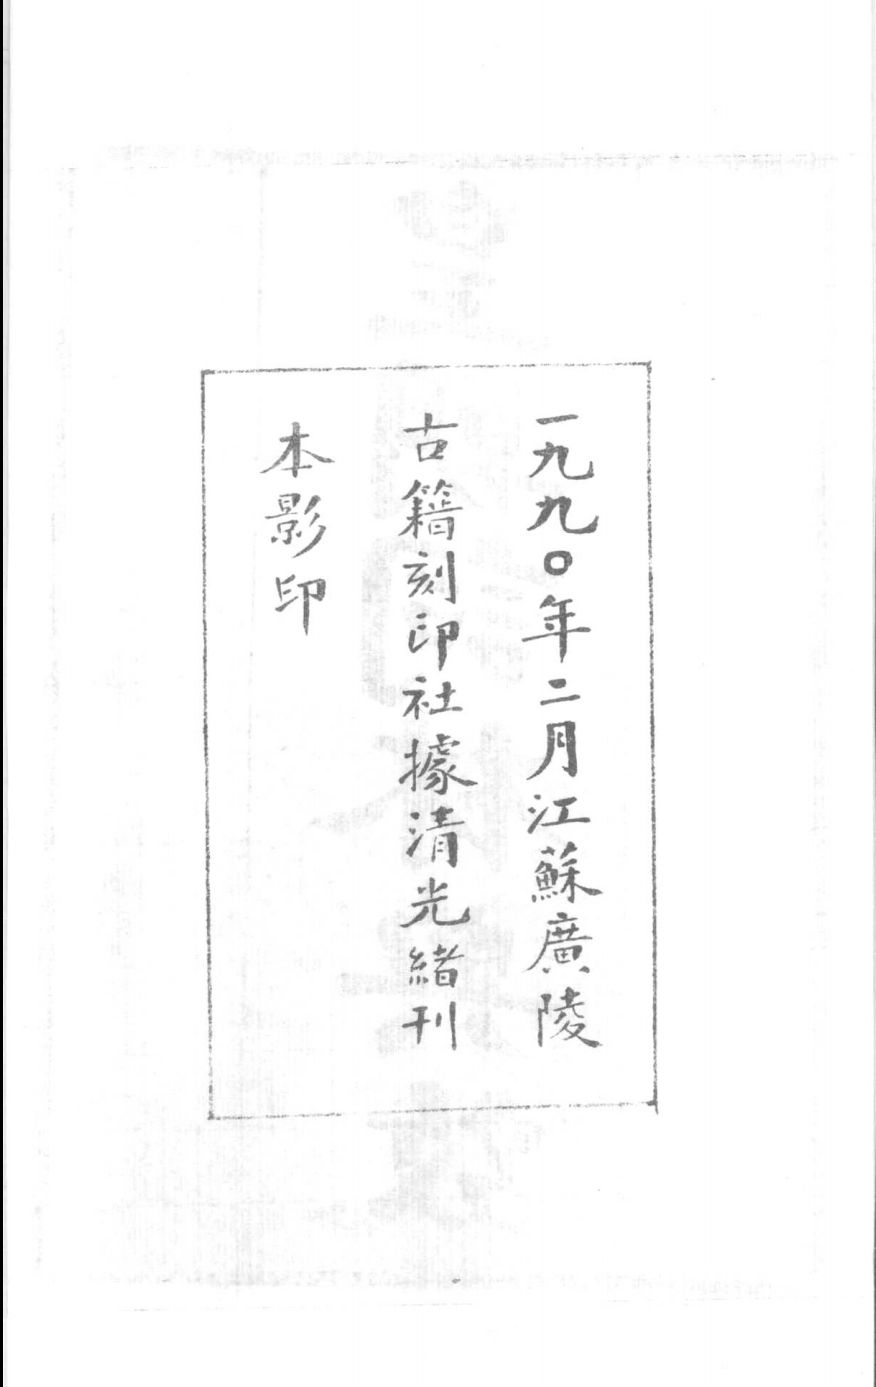 一九九〇年二月江蘇廣陵
古籍刻印社據清光緒刊
本影印